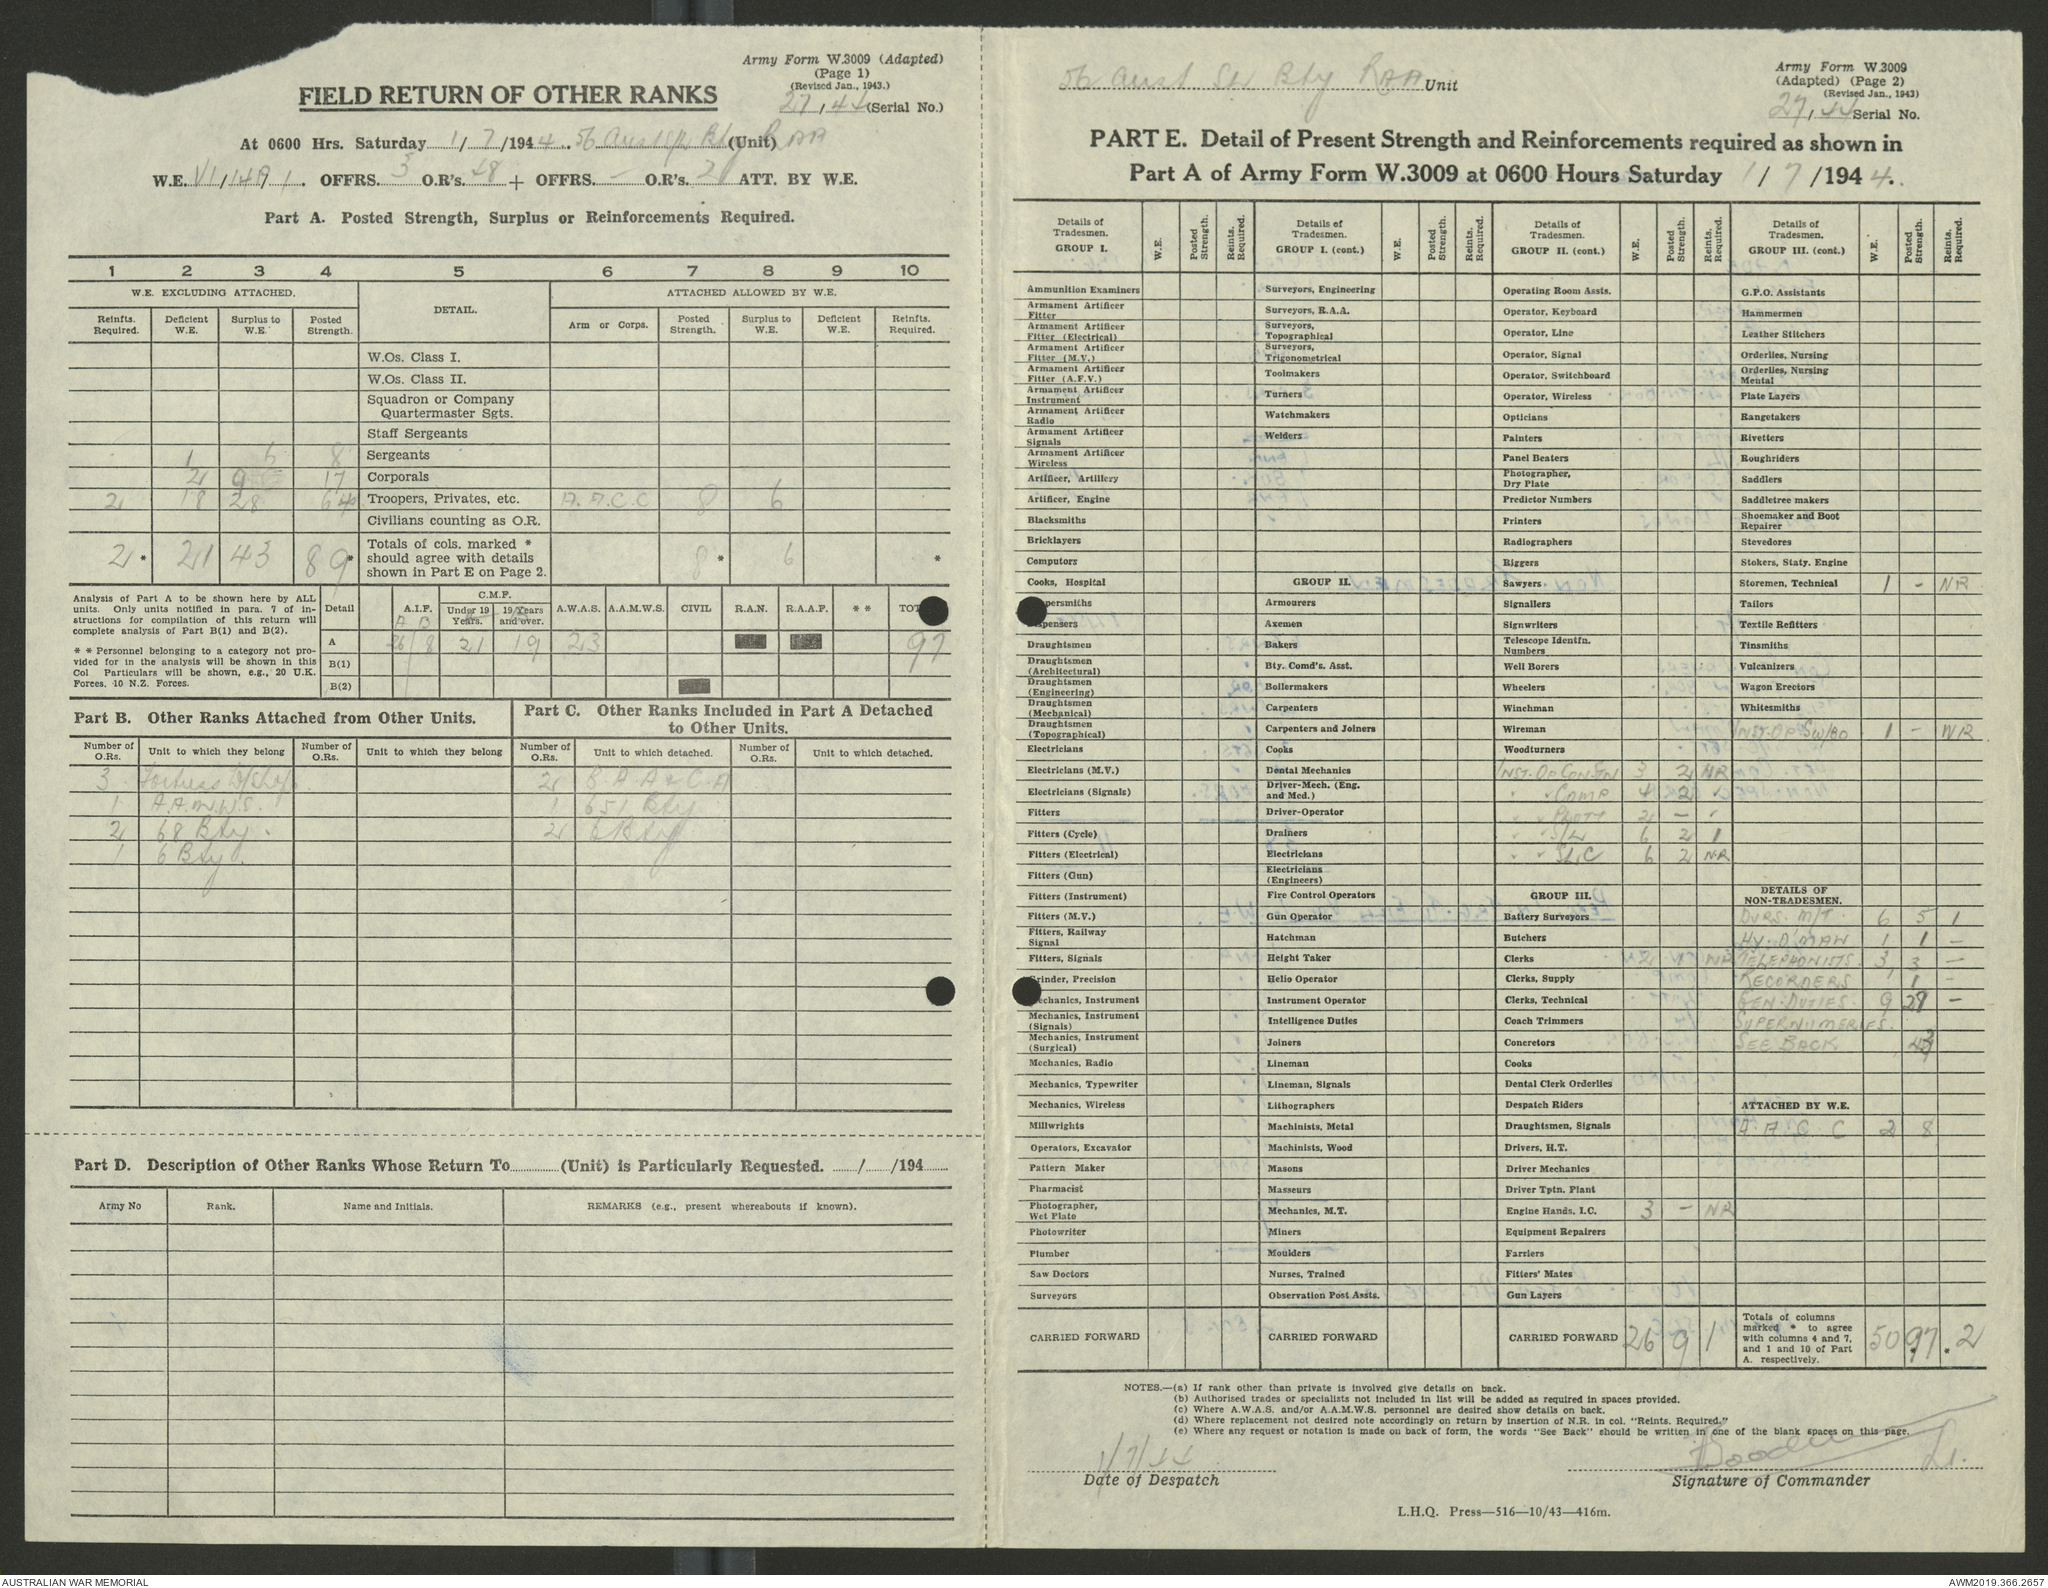 Army Form W.3009 (Adapted)
(Page 1)
(Revised Jan., 1943.)
FIELD RETURN OF OTHER RANKS
27/44 (Serial No.)
At 0600 Hrs. Saturday 1/7/1944. 56 Aust S/L Bty RAA (Unit)
W.E. VI/149A/1. OFFRS. 3 O.R's. 48 + OFFRS. - O.R's. 2 ATT. BY W.E.
Part A. Posted Strength, Surplus or Reinforcements Required.
1 2 3 4 5 6 7 8 9 10
W.E. EXCLUDING ATTACHED. DETAIL. ATTACHED ALLOWED BY W.E.
Reinfts. Required. Deficient W.E. Surplus to W.E. Posted Strength. Arm or Corps. Posted Strength. Surplus to W.E. Deficient W.E. Reinfts. Required.
W.Os. Class I.
W.Os. Class II.
Squadron or Company Quartermaster Sgts.
Staff Sergeants
1 6 8 Sergeants
2 9 17 Corporals
2 18 28 64 Troopers, Privates, etc. A.A.C.C 8 6
Civilians counting as O.R.
2 * 21 43 89 * Totals of cols. marked * should agree with details shown in Part E on Page 2. 8 * 6 *
Analysis of Part A to be shown here by ALL units. Only units notified in para. 7 of instructions for compilation of this return will complete analysis of Part B(1) and B(2).
* * Personnel belonging to a category not provided for in the analysis will be shown in this Col Particulars will be shown, e.g., 20 U.K. Forces, 10 N.Z. Forces.
Detail A.I.F. C.M.F. Under 19 Years. 19 Years and over. A.W.A.S. A.A.M.W.S. CIVIL R.A.N. R.A.A.F. * * TOT
A B
A 26 8 21 19 23 97
B(1)
B(2)
Part B. Other Ranks Attached from Other Units.
Part C. Other Ranks Included in Part A Detached to Other Units.
Number of O.Rs. Unit to which they belong Number of O.Rs. Unit to which they belong Number of O.Rs. Unit to which detached. Number of O.Rs. Unit to which detached.
3 Fortress W/Shop 2 B.A.A & C.A
1 A.A.M.W.S. 1 651 Bty
2 68 Bty. 2 6 Bty
1 6 Bty.
Part D. Description of Other Ranks Whose Return To (Unit) is Particularly Requested. / /194
Army No Rank. Name and Initials. REMARKS (e.g., present whereabouts if known).
56 Aust S/L Bty RAA Unit
Army Form W.3009
(Adapted) (Page 2)
(Revised Jan., 1943)
27/44 Serial No.
PART E. Detail of Present Strength and Reinforcements required as shown in
Part A of Army Form W.3009 at 0600 Hours Saturday 1/7/1944.
Details of Tradesmen. GROUP I. W.E. Posted Strength. Reints. Required.
Ammunition Examiners
Armament Artificer Fitter
Armament Artificer Fitter (Electrical)
Armament Artificer Fitter (M.V.)
Armament Artificer Fitter (A.F.V.)
Armament Artificer Instrument
Armament Artificer Radio
Armament Artificer Signals
Armament Artificer Wireless
Artificer, Artillery
Artificer, Engine
Blacksmiths
Bricklayers
Computors
Cooks, Hospital
persmiths
pensers
Draughtsmen
Draughtsmen (Architectural)
Draughtsmen (Engineering)
Draughtsmen (Mechanical)
Draughtsmen (Topographical)
Electricians
Electricians (M.V.)
Electricians (Signals)
Fitters
Fitters (Cycle)
Fitters (Electrical)
Fitters (Gun)
Fitters (Instrument)
Fitters (M.V.)
Fitters, Railway Signal
Fitters, Signals
rinder, Precision
echanics, Instrument
Mechanics, Instrument (Signals)
Mechanics, Instrument (Surgical)
Mechanics, Radio
Mechanics, Typewriter
Mechanics, Wireless
Millwrights
Operators, Excavator
Pattern Maker
Pharmacist
Photographer, Wet Plate
Photowriter
Plumber
Saw Doctors
Surveyors
CARRIED FORWARD
Details of Tradesmen. GROUP I. (cont.) W.E. Posted Strength. Reints. Required.
Surveyors, Engineering
Surveyors, R.A.A.
Surveyors, Topographical
Surveyors, Trigonometrical
Toolmakers
Turners
Watchmakers
Welders
GROUP II.
Armourers
Axemen
Bakers
Bty. Comd's. Asst.
Boilermakers
Carpenters
Carpenters and Joiners
Cooks
Dental Mechanics
Driver-Mech. (Eng. and Med.)
Driver-Operator
Drainers
Electricians
Electricians (Engineers)
Fire Control Operators
Gun Operator
Hatchman
Height Taker
Helio Operator
Instrument Operator
Intelligence Duties
Joiners
Lineman
Lineman, Signals
Lithographers
Machinists, Metal
Machinists, Wood
Masons
Masseurs
Mechanics, M.T.
Miners
Moulders
Nurses, Trained
Observation Post Assts.
CARRIED FORWARD
Details of Tradesmen. GROUP II. (cont.) W.E. Posted Strength. Reints. Required.
Operating Room Assts.
Operator, Keyboard
Operator, Line
Operator, Signal
Operator, Switchboard
Operator, Wireless
Opticians
Painters
Panel Beaters
Photographer, Dry Plate
Predictor Numbers
Printers
Radiographers
Riggers
Sawyers
Signallers
Signwriters
Telescope Identfn. Numbers
Well Borers
Wheelers
Winchman
Wireman
Woodturners
INST. OP CON-TN 3 2 NR
" " COMP 4 2 "
" " PHOTT 2 - "
" " S/L 6 2 1
" " SLC 6 2 N.R
GROUP III.
Battery Surveyors
Butchers
Clerks 2 1 NR
Clerks, Supply
Clerks, Technical
Coach Trimmers
Concretors
Cooks
Dental Clerk Orderlies
Despatch Riders
Draughtsmen, Signals
Drivers, H.T.
Driver Mechanics
Driver Tptn. Plant
Engine Hands, I.C. 3 - NR
Equipment Repairers
Farriers
Fitters' Mates
Gun Layers
CARRIED FORWARD 26 9 1
Details of Tradesmen. GROUP III. (cont.) W.E. Posted Strength. Reints. Required.
G.P.O. Assistants
Hammermen
Leather Stitchers
Orderlies, Nursing
Orderlies, Nursing Mental
Plate Layers
Rangetakers
Rivetters
Roughriders
Saddlers
Saddletree makers
Shoemaker and Boot Repairer
Stevedores
Stokers, Staty. Engine
Storemen, Technical 1 - NR
Tailors
Textile Refitters
Tinsmiths
Vulcanizers
Wagon Erectors
Whitesmiths
INST. OP SW/BD 1 - NR
DETAILS OF NON-TRADESMEN.
DVRS. M/T. 6 5 1
HY. D. MAN 1 1 -
TELEPHONISTS. 3 3 -
RECORDERS 1 -
GEN. DUTIES. 9 28 -
SUPERNUMERIES.
SEE BACK 43
ATTACHED BY W.E.
A A C C 2 8
Totals of columns marked * to agree with columns 4 and 7, and 1 and 10 of Part A. respectively. 50 97 * 2
NOTES.—(a) If rank other than private is involved give details on back.
(b) Authorised trades or specialists not included in list will be added as required in spaces provided.
(c) Where A.W.A.S. and/or A.A.M.W.S. personnel are desired show details on back.
(d) Where replacement not desired note accordingly on return by insertion of N.R. in col. "Reints. Required."
(e) Where any request or notation is made on back of form, the words "See Back" should be written in one of the blank spaces on this page.
1/7/44
Date of Despatch
Lt.
Signature of Commander
L.H.Q. Press—516—10/43—416m.
AUSTRALIAN WAR MEMORIAL
AWM2019.366.2657